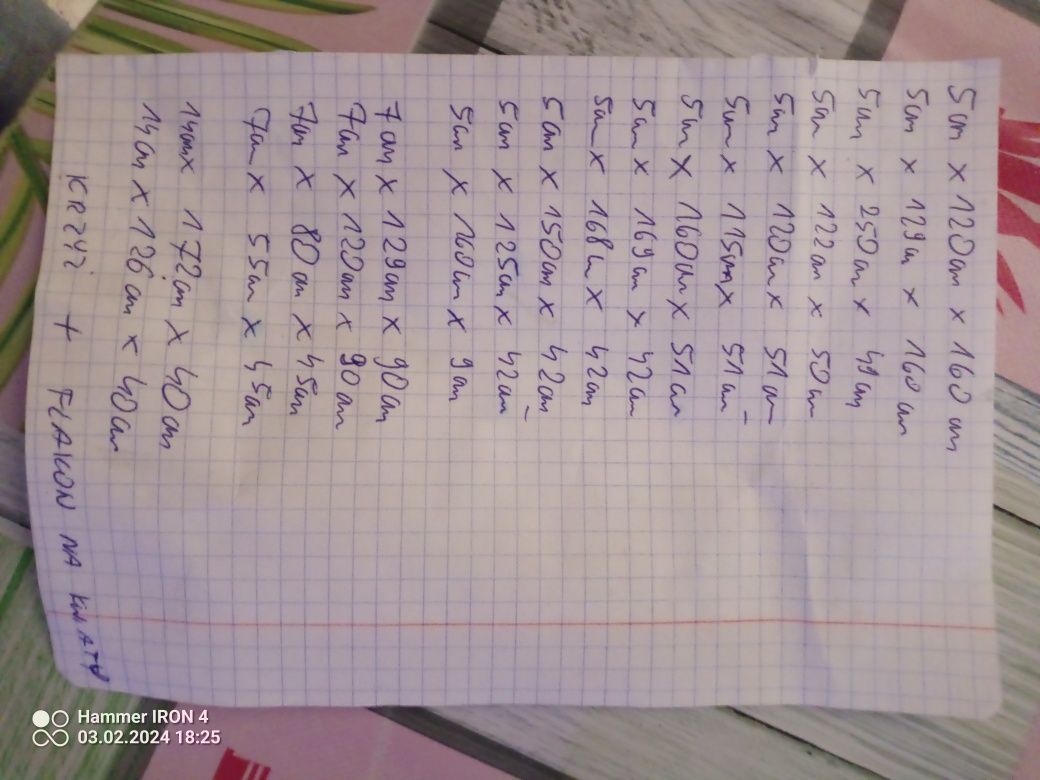 5cm x 120cm x 160cm
5cm x 129cm x 160cm
5cm x 250cm x 49cm
5cm x 122cm x 50cm
5cm x 120cm x 51cm
5cm x 115cm x 51cm
5cm x 160cm x 51cm
5cm x 169cm x 42cm
5cm x 168cm x 42cm
5cm x 150cm x 42cm
5cm x 125cm x 42cm
5cm x 160cm x 9cm
7cm x 129cm x 90cm
7cm x 120cm x 90cm
7cm x 80cm x 45cm
7cm x 55cm x 45cm
14cm x 172cm x 40cm
14cm x 126cm x 40cm
KRZYŻ + FLAKON NA KWIATY
Hammer IRON 4
03.02.2024 18:25